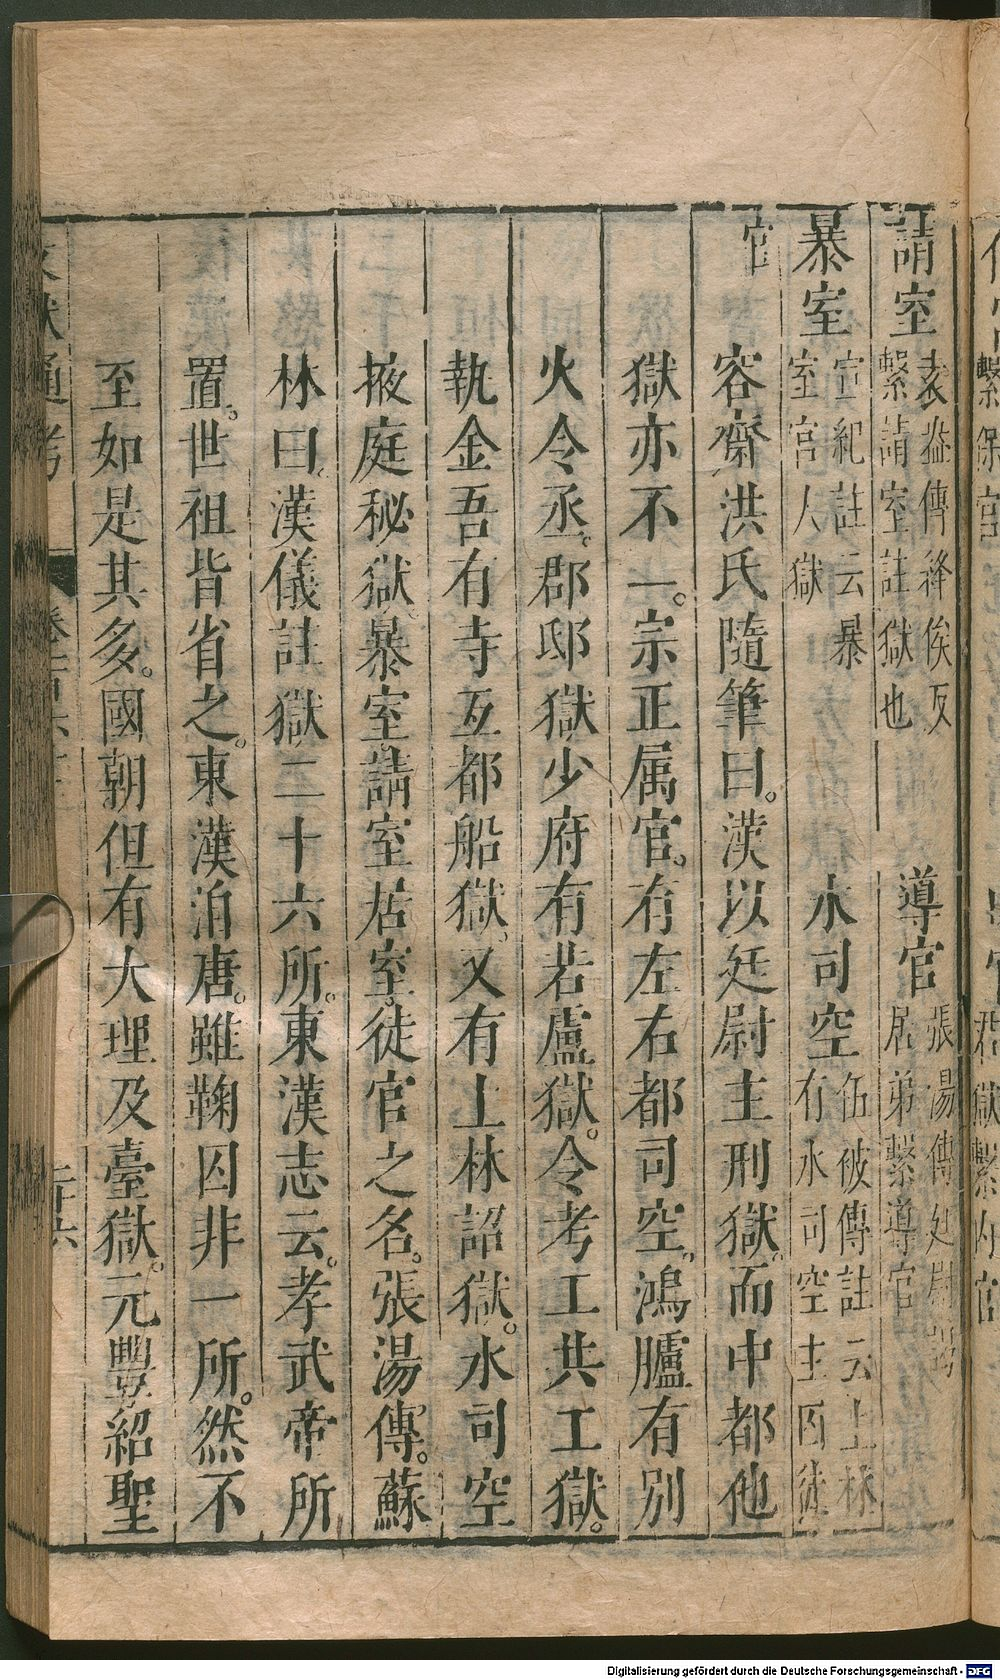 請室 袁盎傳絳侯反繫請室註獄也 導官 張湯傳廷尉謁居弟繫導官
暴室 宣紀註云暴室宮人獄 水司空 伍被傳註云上林有水司空主囚徒
容齋洪氏隨筆曰漢以廷尉主刑獄而中都他
獄亦不一宗正属官有左右都司空鴻臚有別
火令丞郡邸獄少府有若盧獄令考工共工獄
執金吾有寺互都船獄又有上林詔獄水司空
掖庭秘獄暴室請室居室徒官之名張湯傳蘇
林曰漢儀註獄二十六所東漢志云孝武帝所
置世祖皆省之東漢洎唐雖鞠囚非一所然不
至如是其多國朝但有大理及臺獄元豐紹聖
通考
二十六
Digitalisierung gefördert durch die Deutsche Forschungsgemeinschaft - DFG